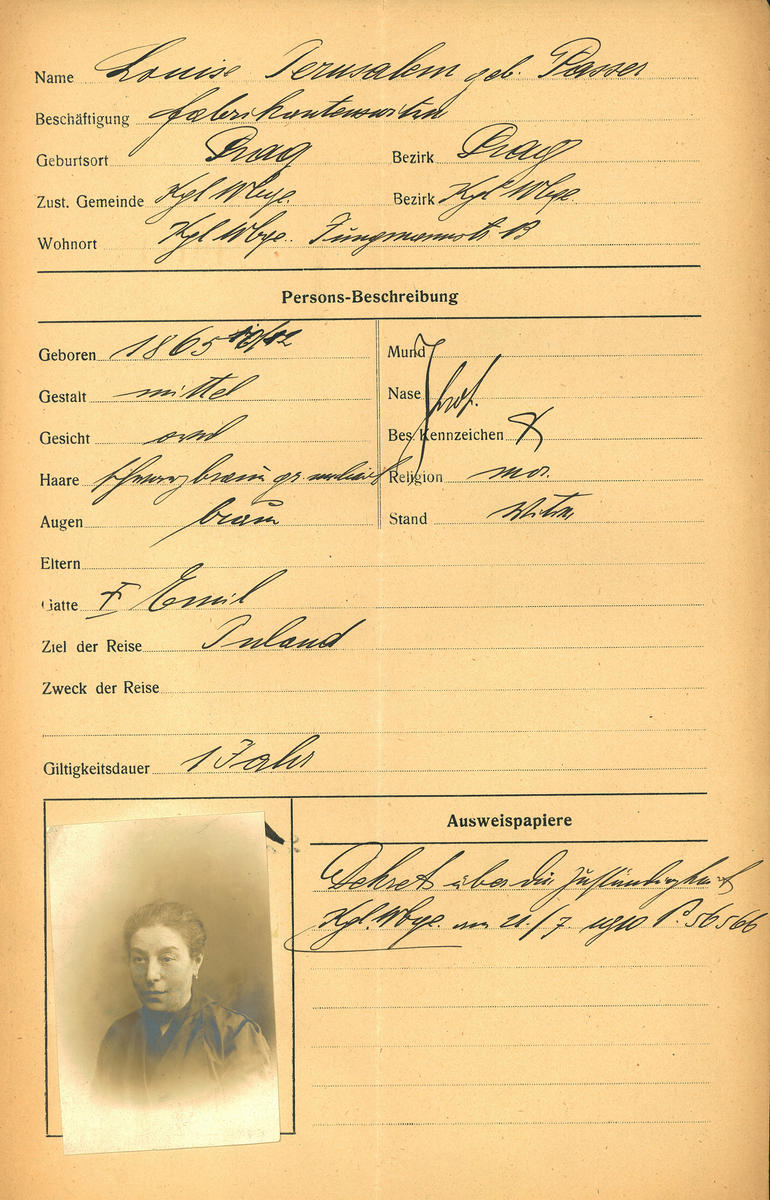 Name Louise Jerusalem geb. Passer
Beschäftigung Fabrikantenswitwe
Geburtsort Prag Bezirk Prag
Zust. Gemeinde Kgl Wbge. Bezirk Kgl Wbge.
Wohnort Kgl Wbge. Jungmannstr 13
Persons-Beschreibung
Geboren 1865 Mund
Gestalt mittel Nase prop.
Gesicht oval Bes. Kennzeichen
Haare schwarzbraun gr. meliert Religion mos.
Augen braun Stand Witwe
Eltern
Gatte † Emil
Ziel der Reise Inland
Zweck der Reise
Giltigkeitsdauer 1 Jahr
Ausweispapiere
Dekret über die Zuständigkeit
Kgl. Wbge. 21./7. 1910 P. 56566